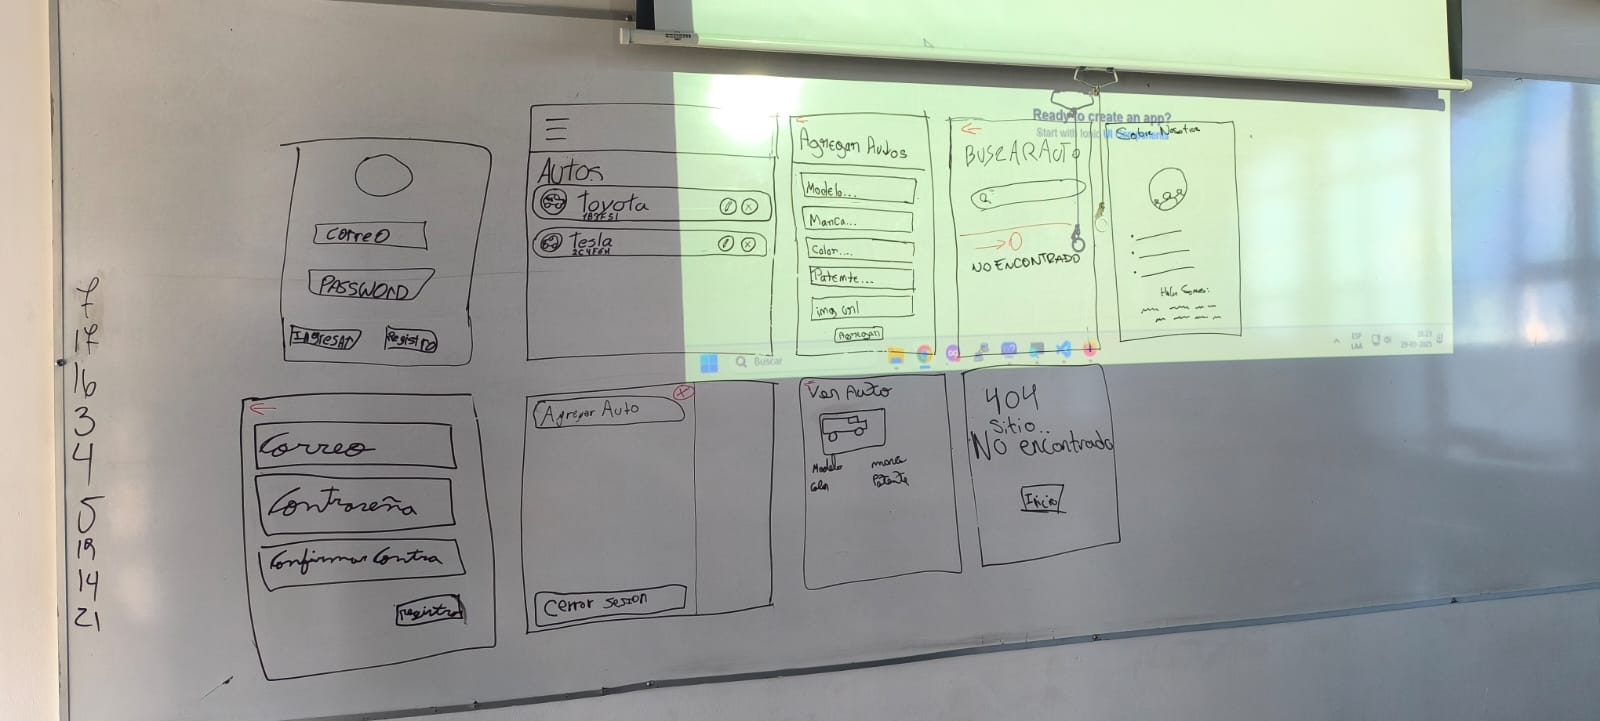 7
17
16
3
4
5
19
14
21
correo
PASSWORD
Ingresar
Registro
AUTOS
toyota
Tesla
Agregar Autos
Modelo...
Marca...
Color....
Patente...
img url
Agregar
BUSCAR AUTO
NO ENCONTRADO
Ready to create an app?
Start with Ionic UI
Sobre Nosotros
Buscar
ESP
LAA
Correo
Contraseña
Confirmar Contra
Registro
Agregar Auto
Cerrar sesion
Ver Auto
Modelo
marca
Color
Patente
404
Sitio..
No encontrado
Inicio